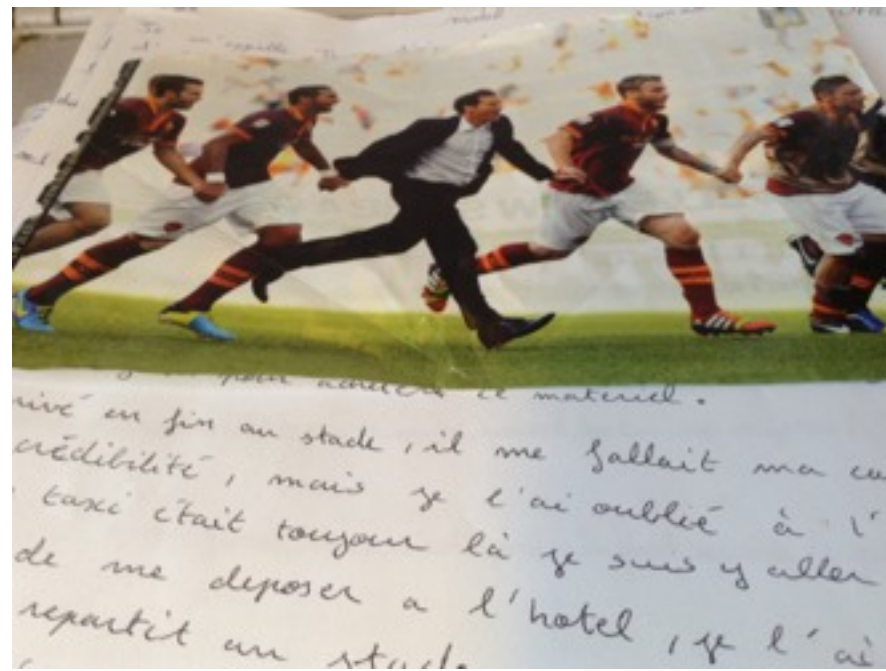 m'appelle
pour acheter ce materiel.
en fin au stade, il me fallait ma
crédibilité, mais je l'ai oublié à l'
taxi était toujour là je suis y aller
de me deposer a l'hotel, je l'ai
repartit au stade